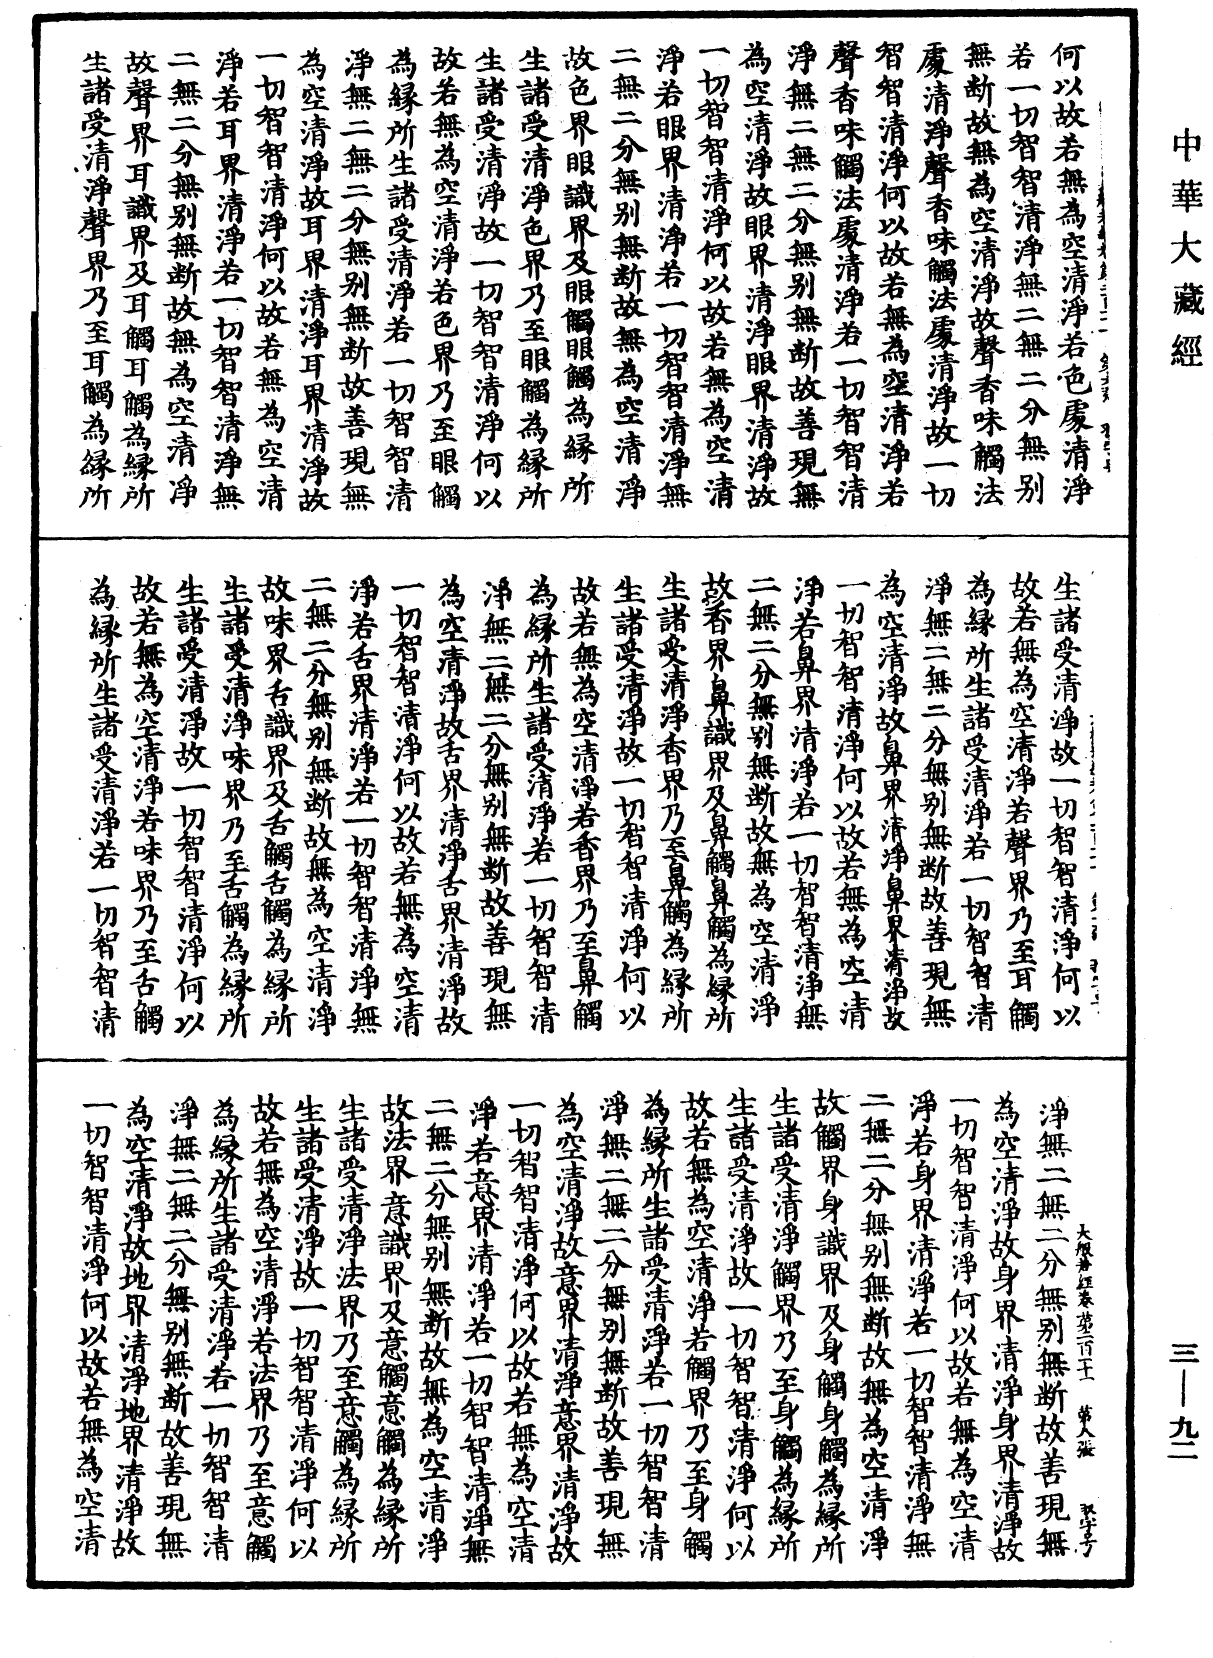 中華大藏經
何以故若無為空清淨若色處清淨
若一切智智清淨無二無二分無別
無断故無為空清淨故聲香味觸法
處清淨聲香味觸法處清淨故一切
智智清淨何以故若無為空清淨若
聲香味觸法處清淨若一切智智清
淨無二無二分無別無断故善現無
為空清淨故眼界清淨眼界清淨故
一切智智清淨何以故若無為空清
淨若眼界清淨若一切智智清淨無
二無二分無別無断故無為空清淨
故色界眼識界及眼觸眼觸為緣所
生諸受清淨色界乃至眼觸為緣所
生諸受清淨故一切智智清淨何以
故若無為空清淨若色界乃至眼觸
為緣所生諸受清淨若一切智智清
淨無二無二分無別無断故善現無
為空清淨故耳界清淨耳界清淨故
一切智智清淨何以故若無為空清
淨若耳界清淨若一切智智清淨無
二無二分無別無断故無為空清淨
故聲界耳識界及耳觸耳觸為緣所
生諸受清淨聲界乃至耳觸為緣所
生諸受清淨故一切智智清淨何以
故若無為空清淨若聲界乃至耳觸
為緣所生諸受清淨若一切智智清
淨無二無二分無別無断故善現無
為空清淨故鼻界清淨鼻界清淨故
一切智智清淨何以故若無為空清
淨若鼻界清淨若一切智智清淨無
二無二分無別無断故無為空清淨
故香界鼻識界及鼻觸鼻觸為緣所
生諸受清淨香界乃至鼻觸為緣所
生諸受清淨故一切智智清淨何以
故若無為空清淨若香界乃至鼻觸
為緣所生諸受清淨若一切智智清
淨無二無二分無別無断故善現無
為空清淨故舌界清淨舌界清淨故
一切智智清淨何以故若無為空清
淨若舌界清淨若一切智智清淨無
二無二分無別無断故無為空清淨
故味界舌識界及舌觸舌觸為緣所
生諸受清淨味界乃至舌觸為緣所
生諸受清淨故一切智智清淨何以
故若無為空清淨若味界乃至舌觸
為緣所生諸受清淨若一切智智清
大般若經卷第二百十一 第八張
淨無二無二分無別無断故善現無
為空清淨故身界清淨身界清淨故
一切智智清淨何以故若無為空清
淨若身界清淨若一切智智清淨無
二無二分無別無断故無為空清淨
故觸界身識界及身觸身觸為緣所
生諸受清淨觸界乃至身觸為緣所
生諸受清淨故一切智智清淨何以
故若無為空清淨若觸界乃至身觸
為緣所生諸受清淨若一切智智清
淨無二無二分無別無断故善現無
為空清淨故意界清淨意界清淨故
一切智智清淨何以故若無為空清
淨若意界清淨若一切智智清淨無
二無二分無別無断故無為空清淨
故法界意識界及意觸意觸為緣所
生諸受清淨法界乃至意觸為緣所
生諸受清淨故一切智智清淨何以
故若無為空清淨若法界乃至意觸
為緣所生諸受清淨若一切智智清
淨無二無二分無別無断故善現無
為空清淨故地界清淨地界清淨故
一切智智清淨何以故若無為空清
三—九二